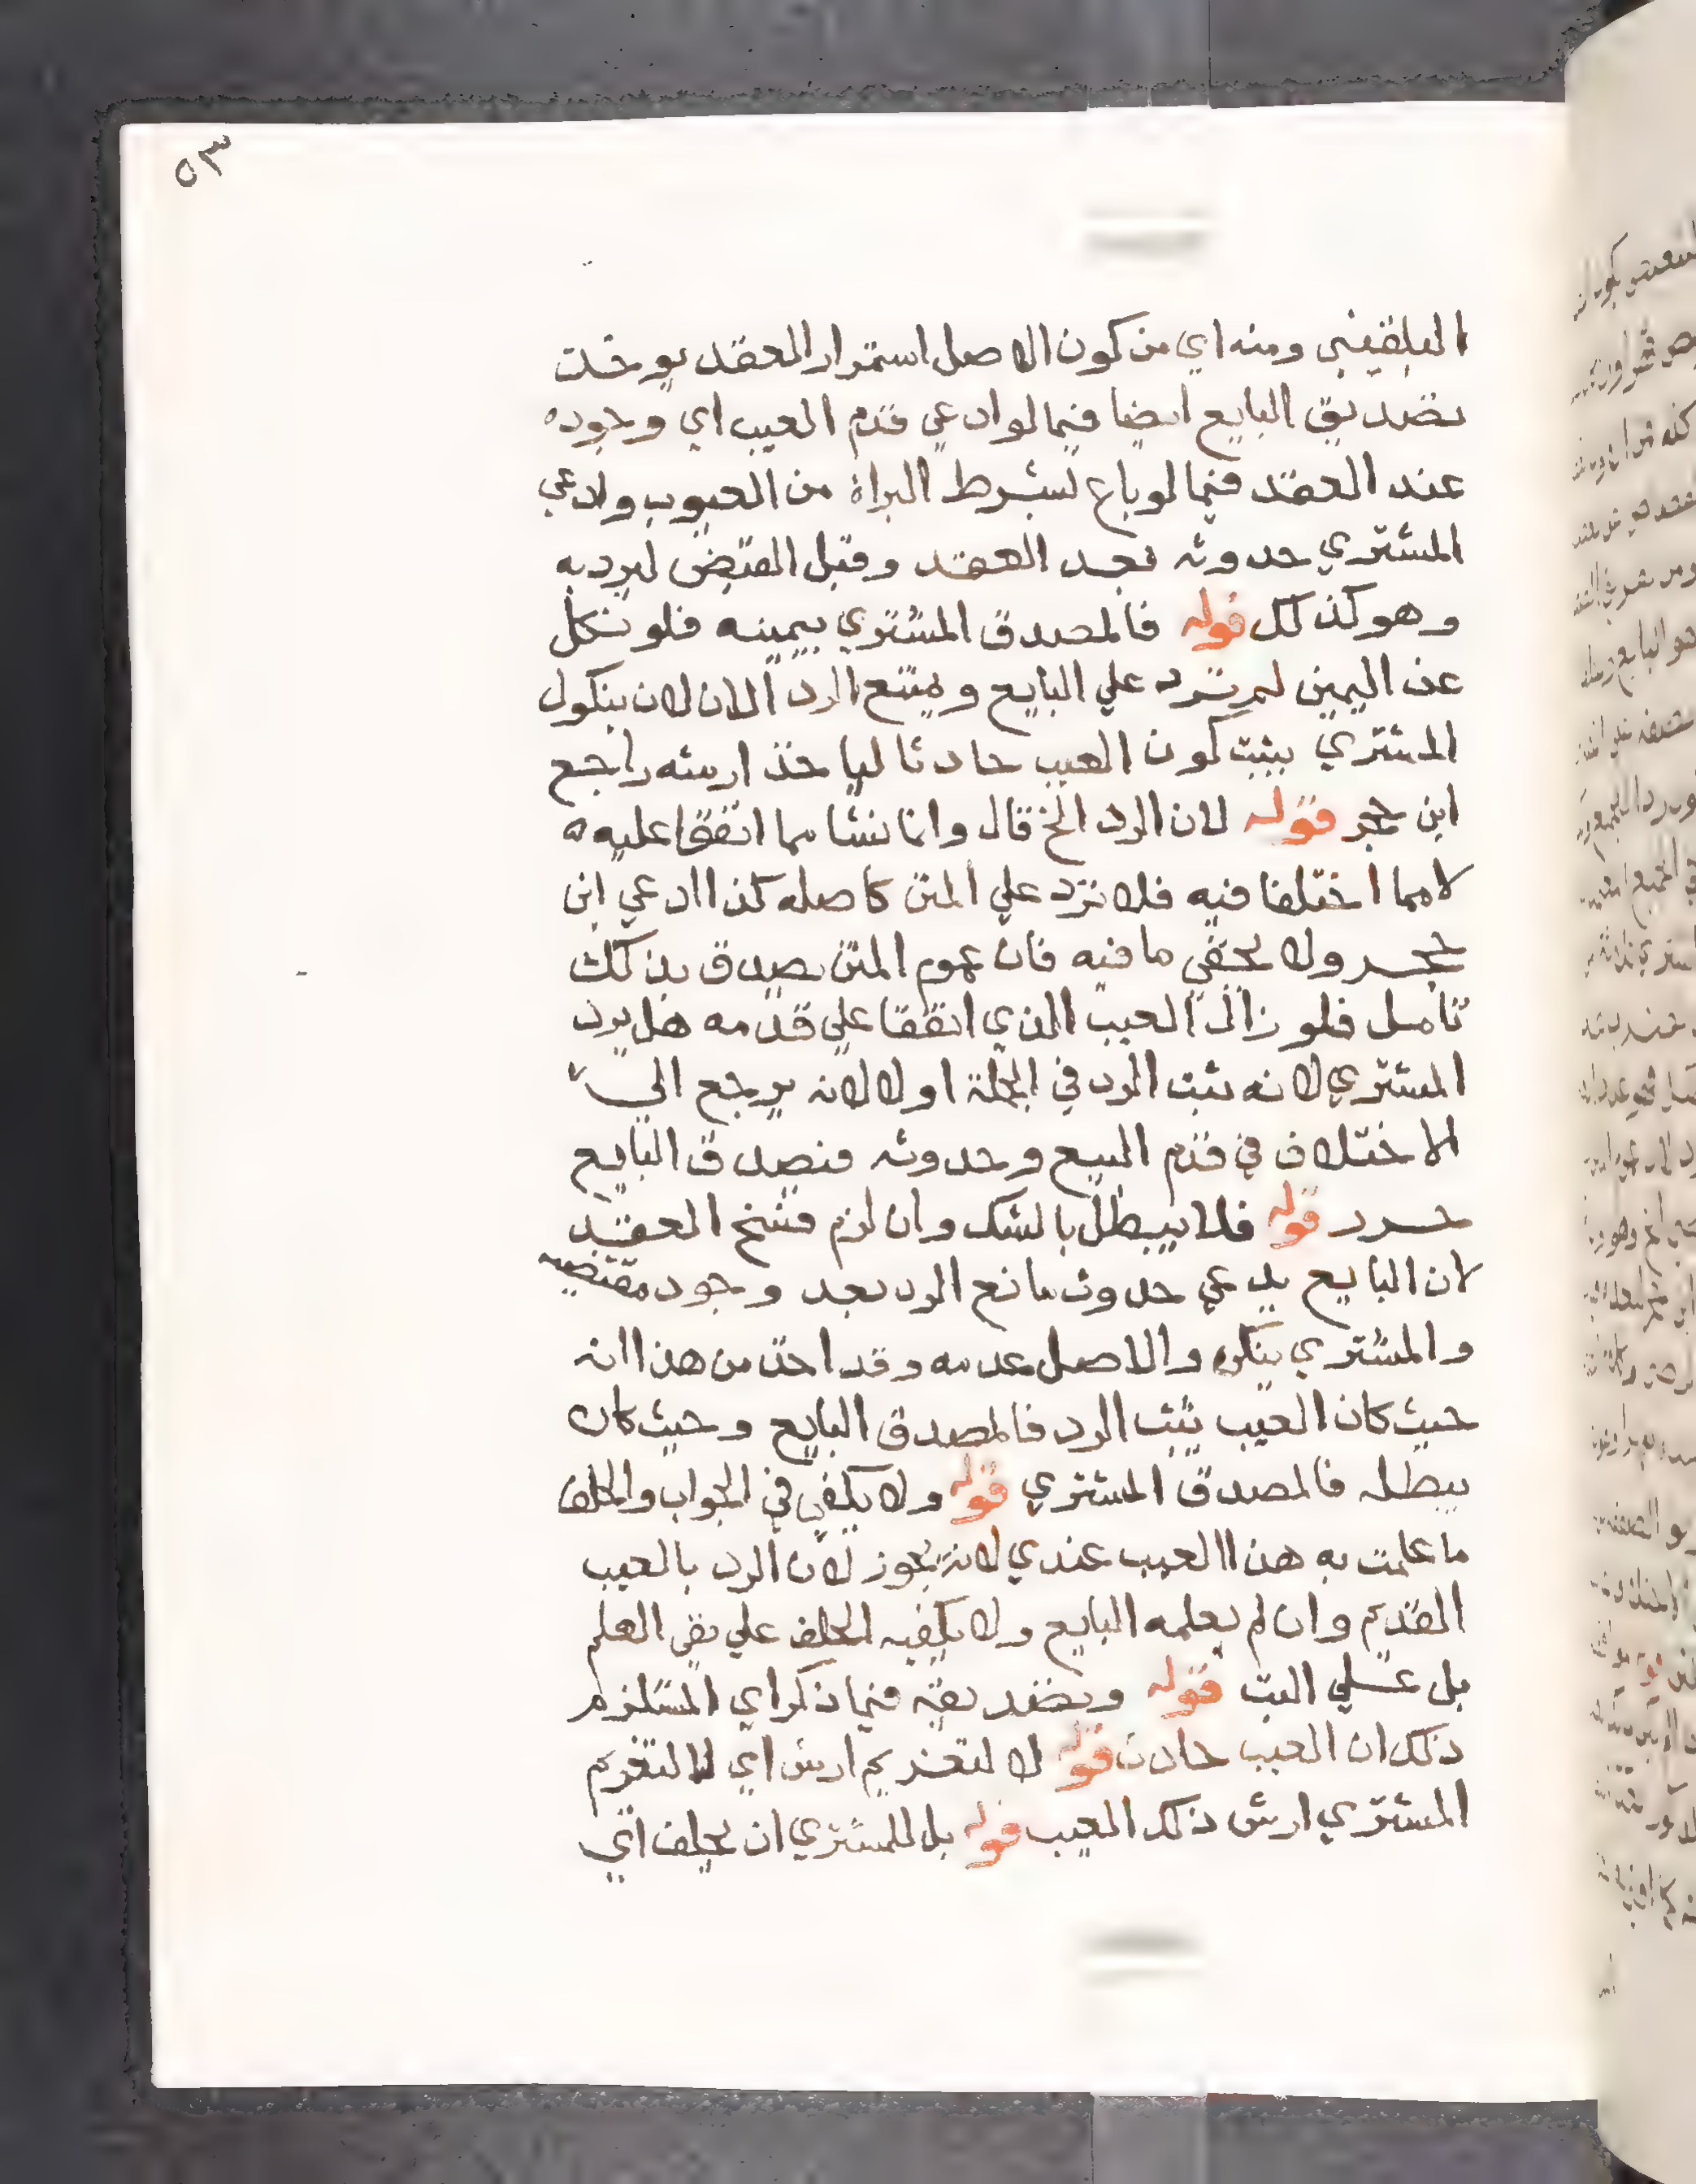 ٥٣
البلقيني ومنه اي من كون الاصل استمرار العقد يوخذ
تصديق البايع ايضا فيما لو ادعي قدم العيب اي وجوده
عند العقد فيما لو باع بشرط البراة من العيوب وادعي
المشتري حدوثه بعد العقد وقبل القبض ليرد به
وهو كذلك قوله فالمصدق المشتري بيمينه فلو نكل
عن اليمين لم ترد علي البايع ويمتنع الرد الان لان بنكول
المشتري يثبت كون العيب حادثا لياخذ ارشه راجع
ابن حجر قوله لان الرد الخ قال وانما نشا مما اتفقا عليه
لا مما اختلفا فيه فلا ترد علي المتن كاصله كذا ادعي ابن
حجر ولا يخفي ما فيه فان عموم المتن يصدق بذلك
تامل فلو زال العيب الذي اتفقا علي قدمه هل يرد
المشتري لانه ثبت الرد في الجملة او لا لانه يرجع الي
الاختلاف في قدم المبيع وحدوثه فنصدق البايع
حرر قوله فلا يبطل بالشك وان لزم فسخ العقد
لان البايع يدعي حدوث مانع الرد بعد وجود مقتضيه
والمشتري ينكره والاصل عدمه وقد اخذ من هذا انه
حيث كان العيب يثبت الرد فالمصدق البايع وحيث كان
يبطله فالمصدق المشتري قوله ولا يكفي في الجواب والحلف
ما علمت به هذا العيب عندي لانه يجوز لان الرد بالعيب
القديم وان لم يعلمه البايع ولا يكفيه الحلف علي نفي العلم
بل علي البت قوله وتصديقه فيما ذكر اي المستلزم
ذلك ان العيب حادث قوله لا لتغريم ارش اي لا لتغريم
المشتري ارش ذلك العيب قوله بل للمشتري ان يحلف اي